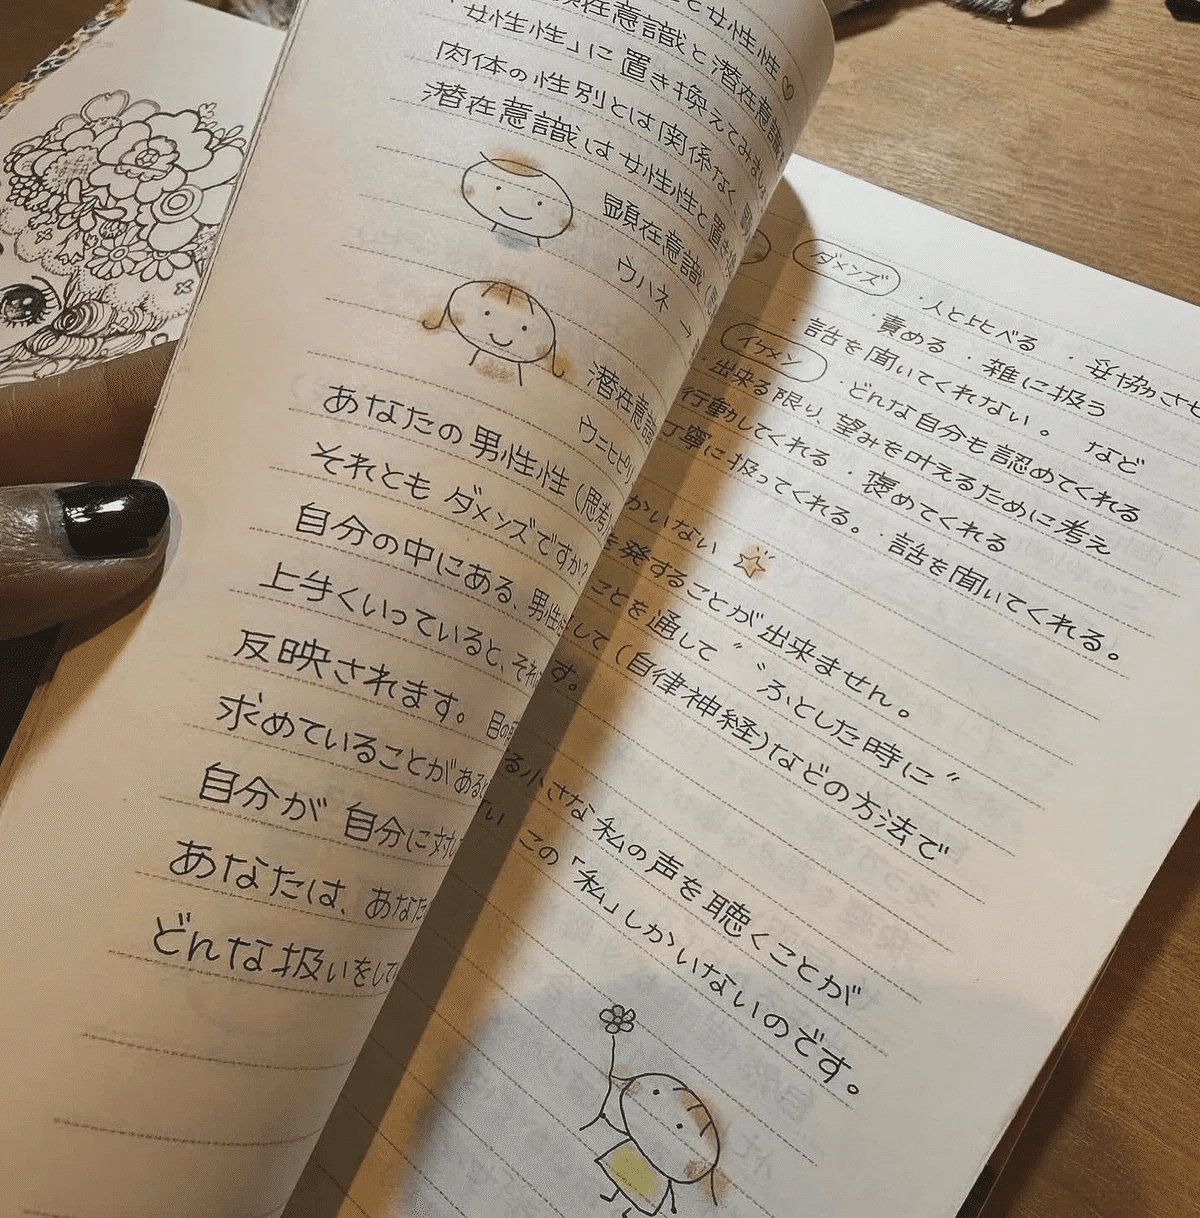 と女性性♡
在意識と潜在意識
「女性性」に置き換えてみま
肉体の性別とは関係なく、
潜在意識は女性性と置き
顕在意識
ウハネ →
潜在意識
ウニヒピリ
あなたの男性性(思考)
それとも ダメンズですか?
自分の中にある、男性性
上手くいっていると、それ
反映されます。 目の
求めていることがあると
自分が 自分に対し
あなたは、あなた
どんな扱いをして
ダメンズ ・人と比べる ・妥協させ
・責める ・雑に扱う
・話を聞いてくれない。 など
イケメン ・どんな自分も認めてくれる
・出来る限り、望みを叶えるために考え
行動してくれる ・褒めてくれる
丁寧に扱ってくれる。・話を聞いてくれる。
かいない
発することが出来ません。
ことを通して〝ふとした時に〟
して(自律神経)などの方法で
す。
る小さな私の声を聴くことが
い この「私」しかいないのです。